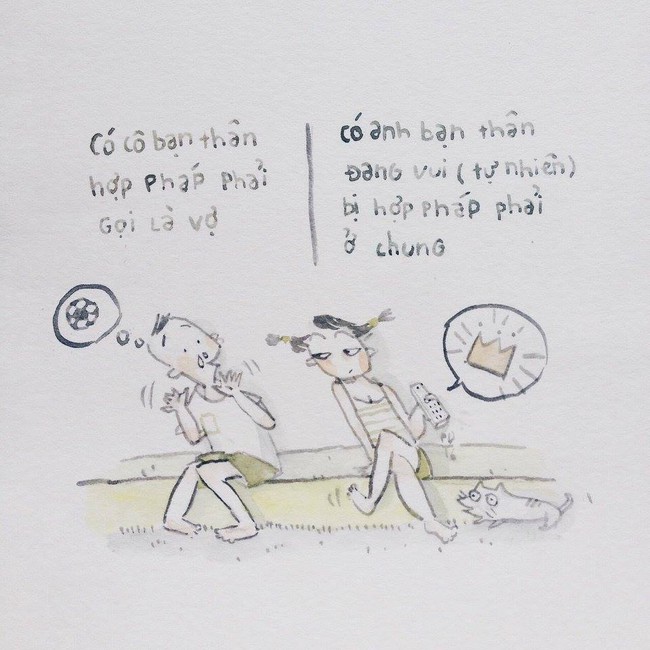 Có cô bạn thân
hợp pháp phải
gọi là vợ
có anh bạn thân
đang vui (tự nhiên)
bị hợp pháp phải
ở chung